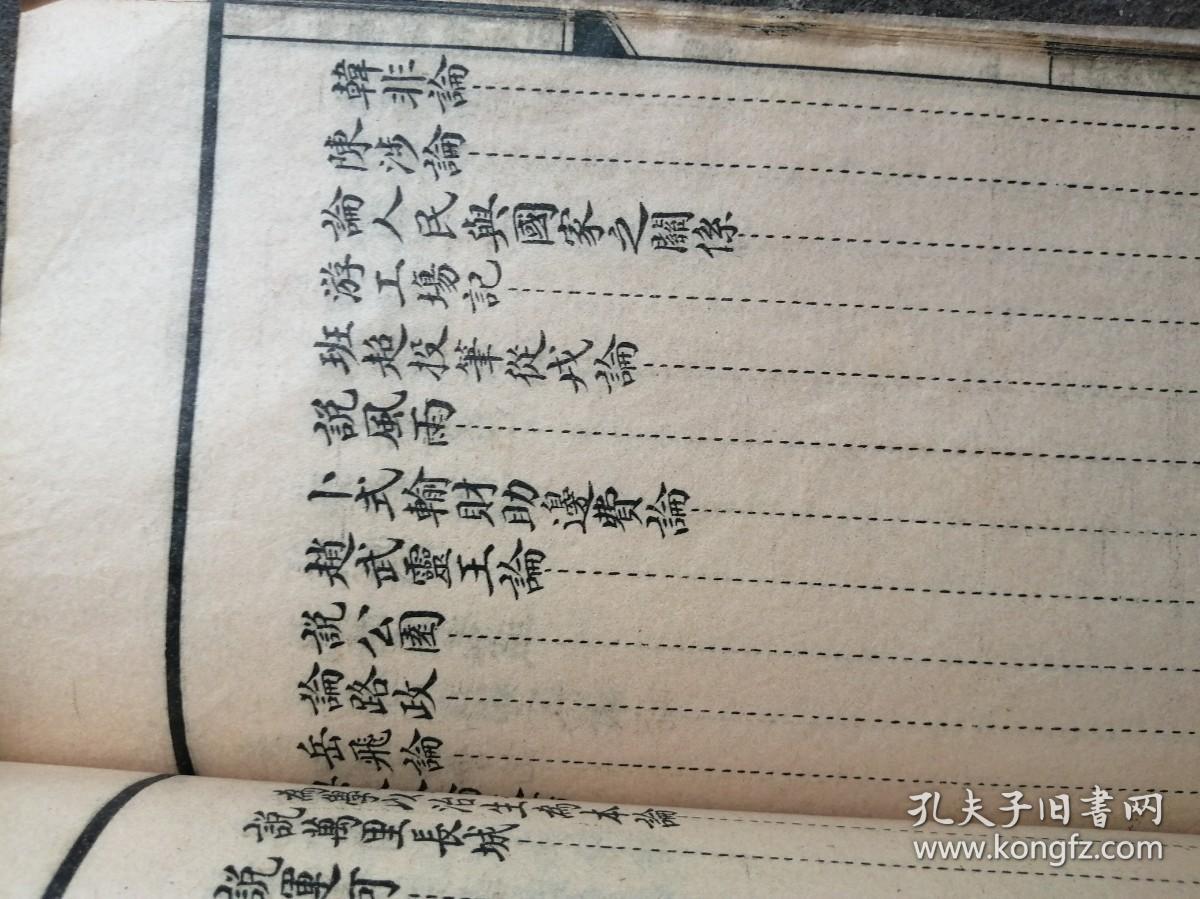 韓非論
陳涉論
論人民與國家之關係
游工塲記
班超投筆從戎論
說風雨
卜式輸財助邊費論
趙武靈王論
說公園
論路政
岳飛論
為學以治生為本論
說萬里長城
說運河
孔夫子旧书网
www.kongfz.com